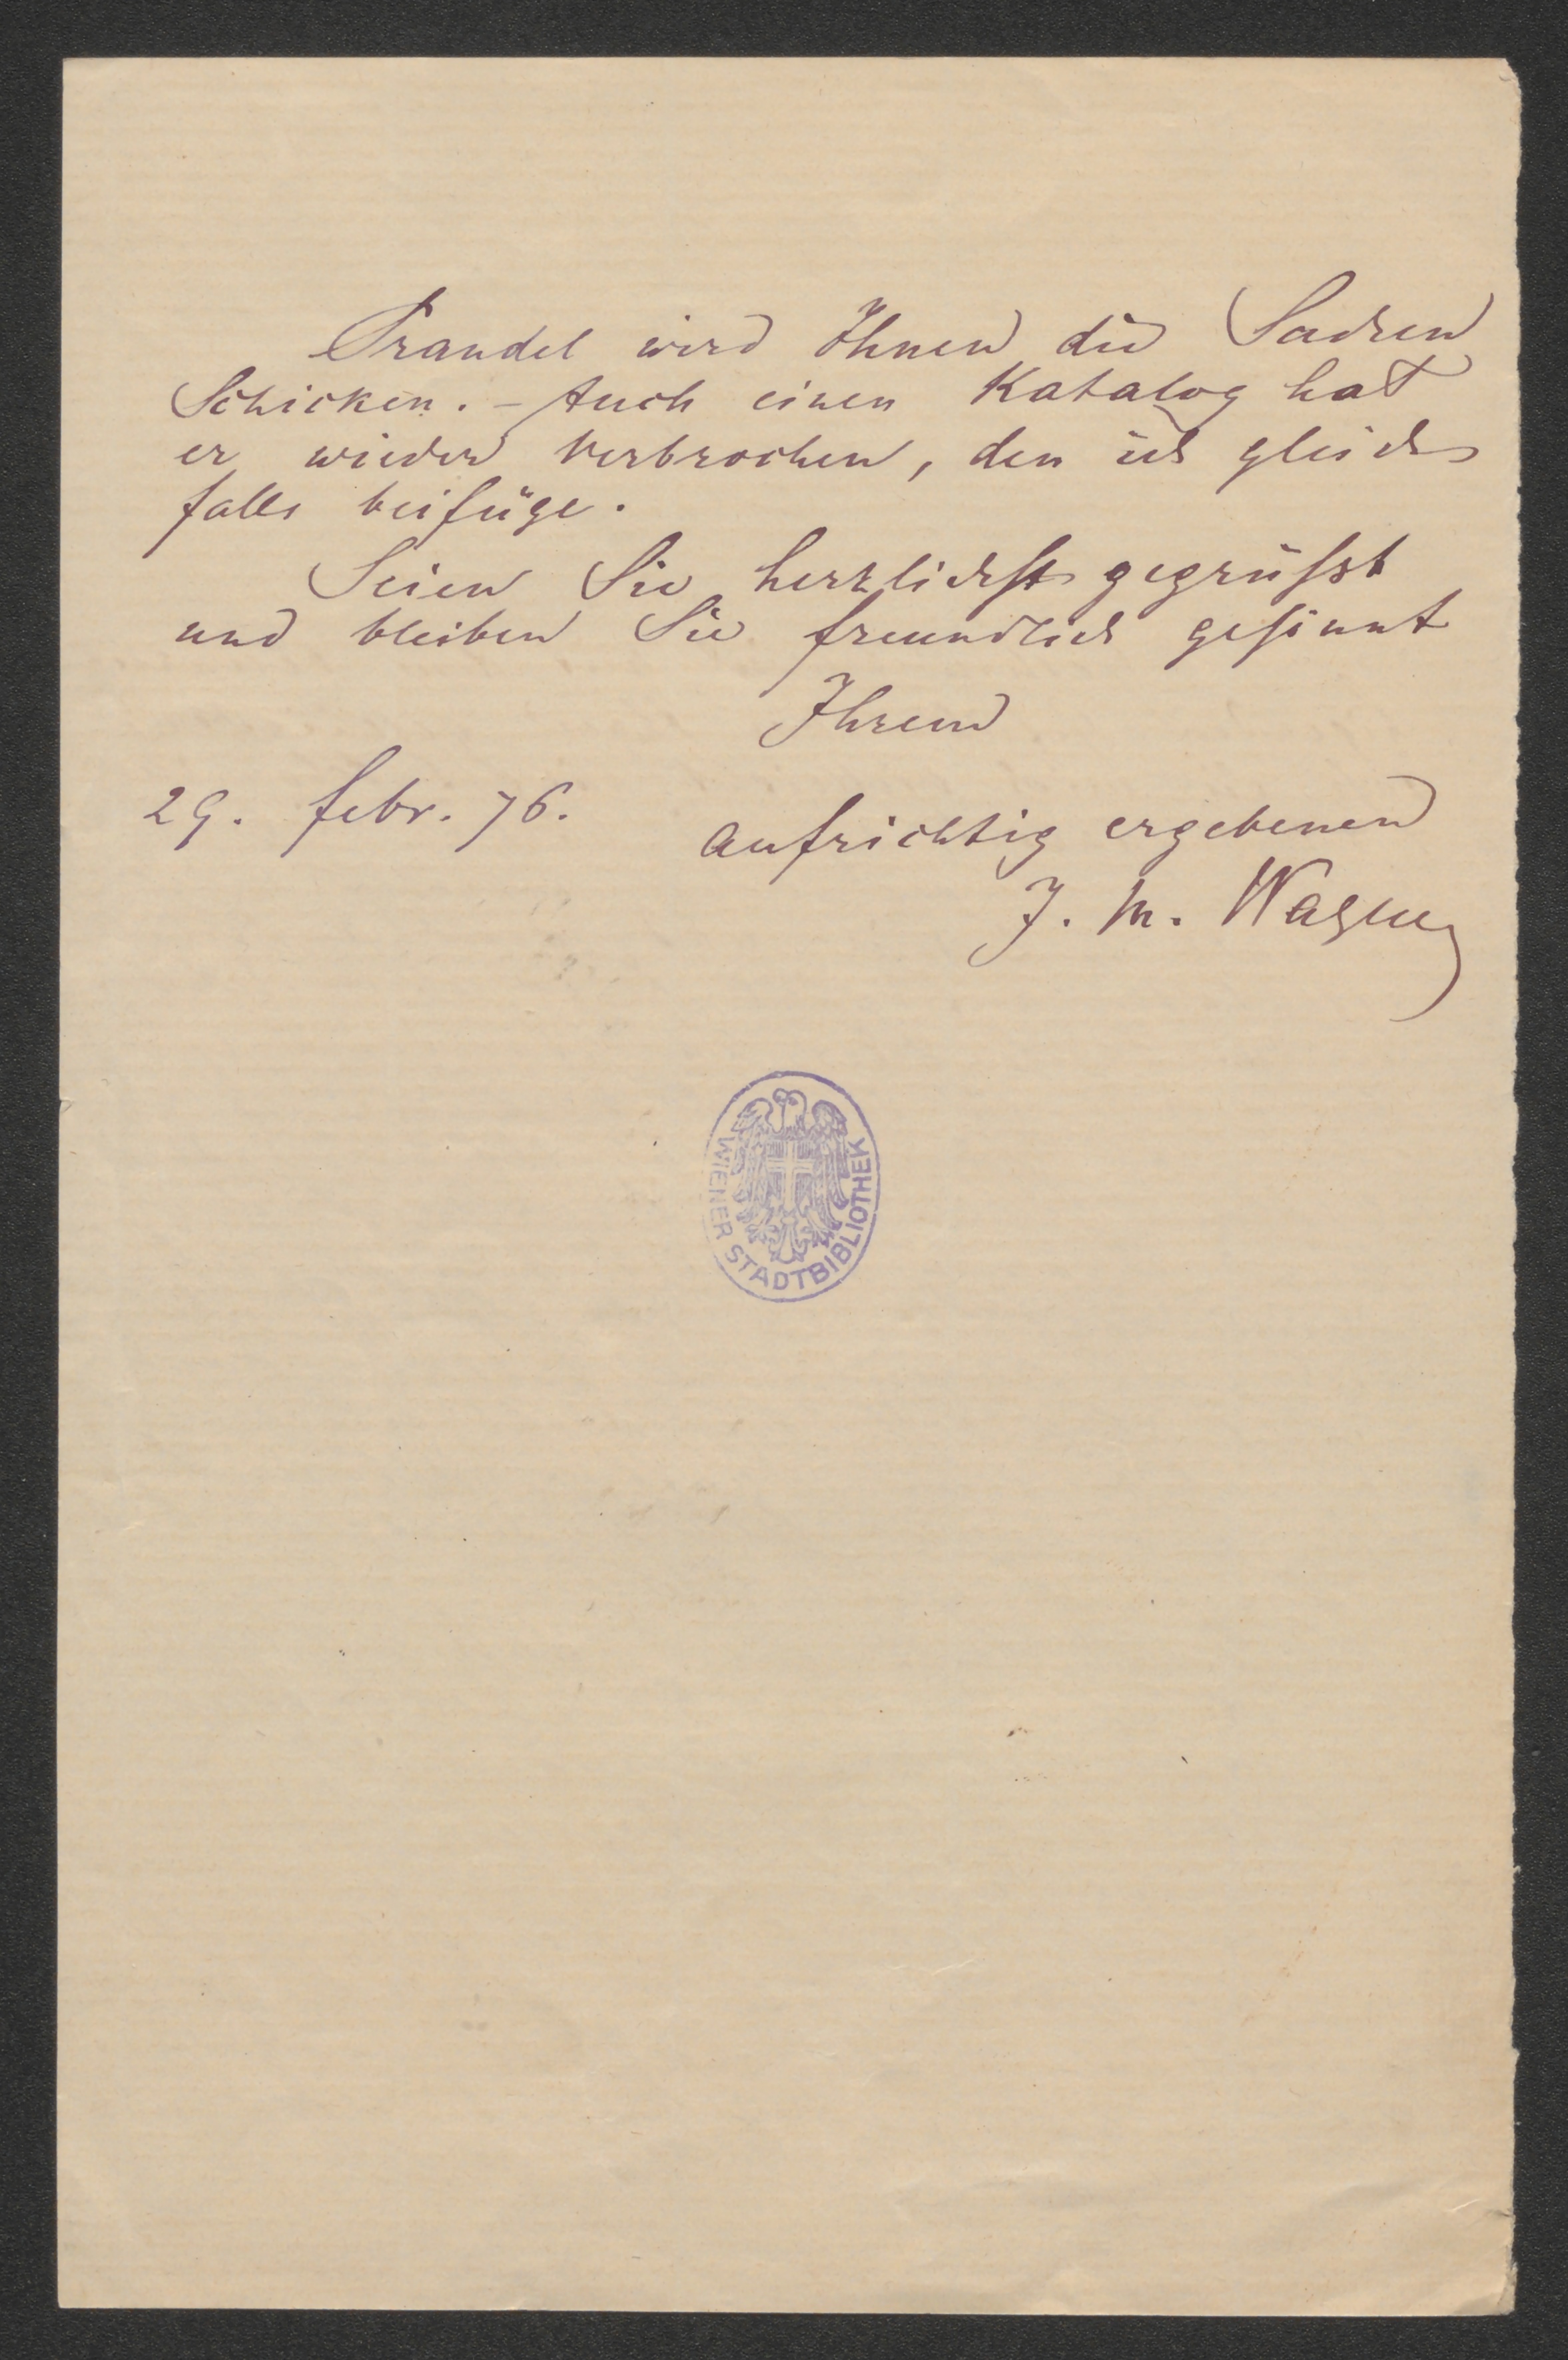 Prandel wird Ihnen die Sachen
schicken. – Auch einen Katalog hat
er wieder verbrochen, den ich gleich
falls beifüge.
Seien Sie herzlichst gegrüßt
und bleiben Sie freundlich gesinnt
Ihrem
29. Febr. 76.
aufrichtig ergebenen
J. M. Wagner
WIENER STADTBIBLIOTHEK